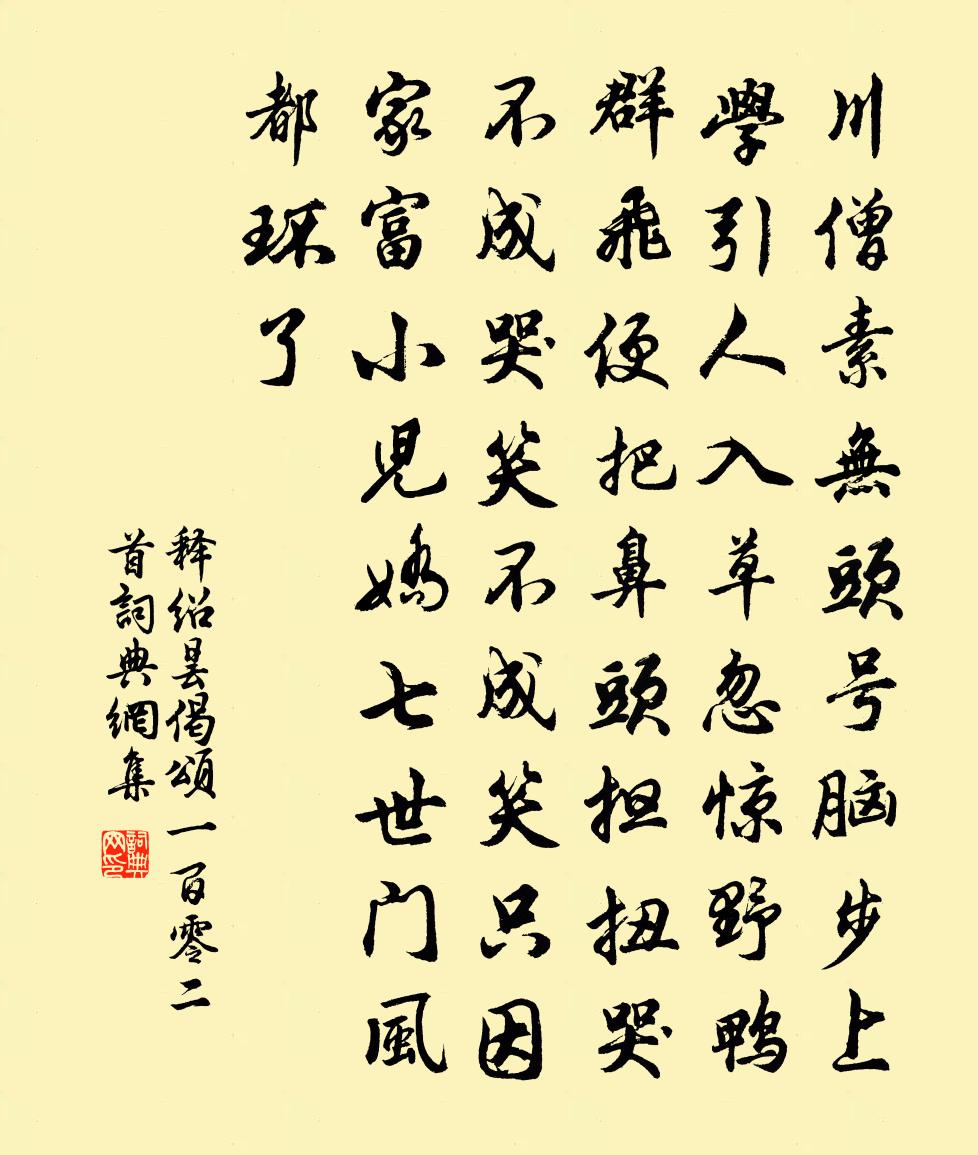 川僧素無頭号脑步上
學引人入草忽惊野鸭
群飛便把鼻頭担扭哭
不成哭笑不成笑只因
家富小児嬌七世门風
都环了
释绍昙偈頌一百零二
首詞典網集
詞典网印